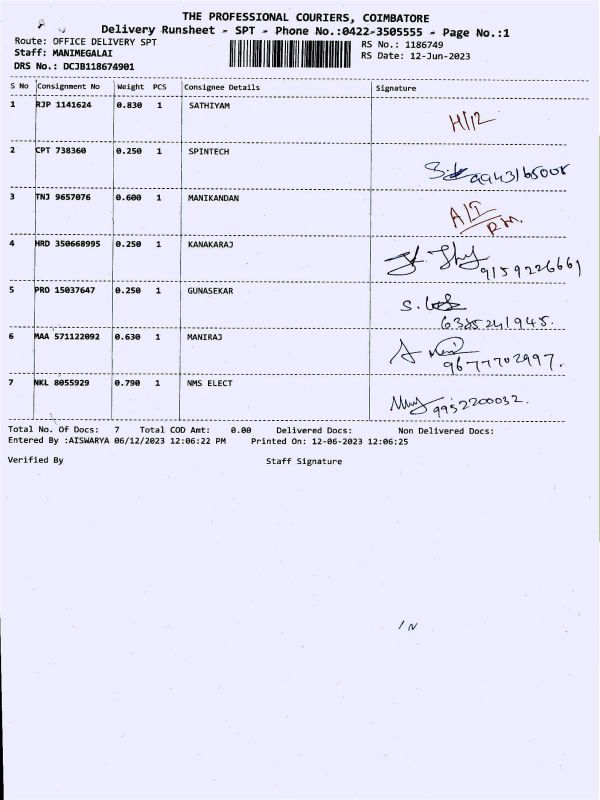 THE PROFESSIONAL COURIERS, COIMBATORE
Delivery Runsheet - SPT - Phone No.:0422-3505555 - Page No.:1
Route: OFFICE DELIVERY SPT
RS No.: 1186749
Staff: MANIMEGALAI
RS Date: 12-Jun-2023
DRS No.: DCJB118674901
S No Consignment No Weight PCS Consignee Details Signature
1 RJP 1141624 0.830 1 SATHIYAM
H/12
2 CPT 738360 0.250 1 SPINTECH
9943165008
3 TNJ 9657076 0.600 1 MANIKANDAN
4 HRD 350668995 0.250 1 KANAKARAJ
9159226661
5 PRO 15037647 0.250 1 GUNASEKAR
6385241945.
6 MAA 571122092 0.630 1 MANIRAJ
9677702997.
7 NKL 8055929 0.790 1 NMS ELECT
9952200032.
Total No. Of Docs: 7 Total COD Amt: 0.00 Delivered Docs: Non Delivered Docs:
Entered By :AISWARYA 06/12/2023 12:06:22 PM Printed On: 12-06-2023 12:06:25
Verified By Staff Signature